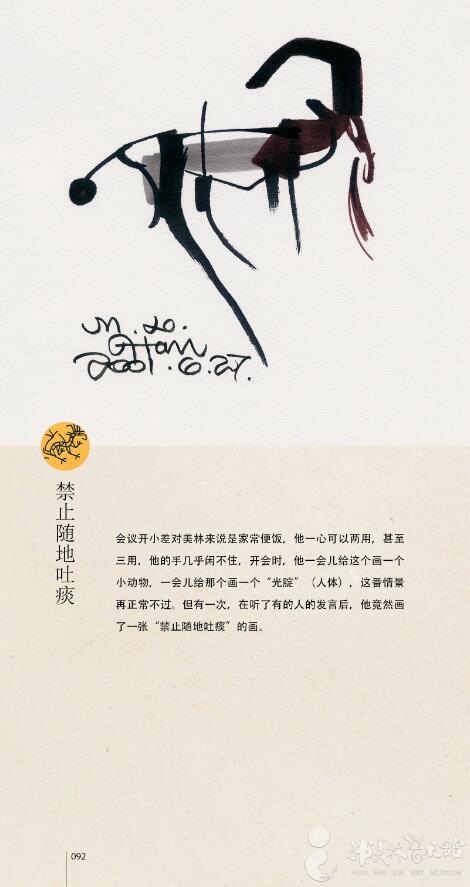 M. L. Han
2001.6.27.
禁止随地吐痰
会议开小差对美林来说是家常便饭，他一心可以两用，甚至
三用，他的手几乎闲不住，开会时，他一会儿给这个画一个
小动物，一会儿给那个画一个“光腚”（人体），这番情景
再正常不过。但有一次，在听了有的人的发言后，他竟然画
了一张“禁止随地吐痰”的画。
092
韩美林艺术馆
HAN MEI LIN ART MUSEUM